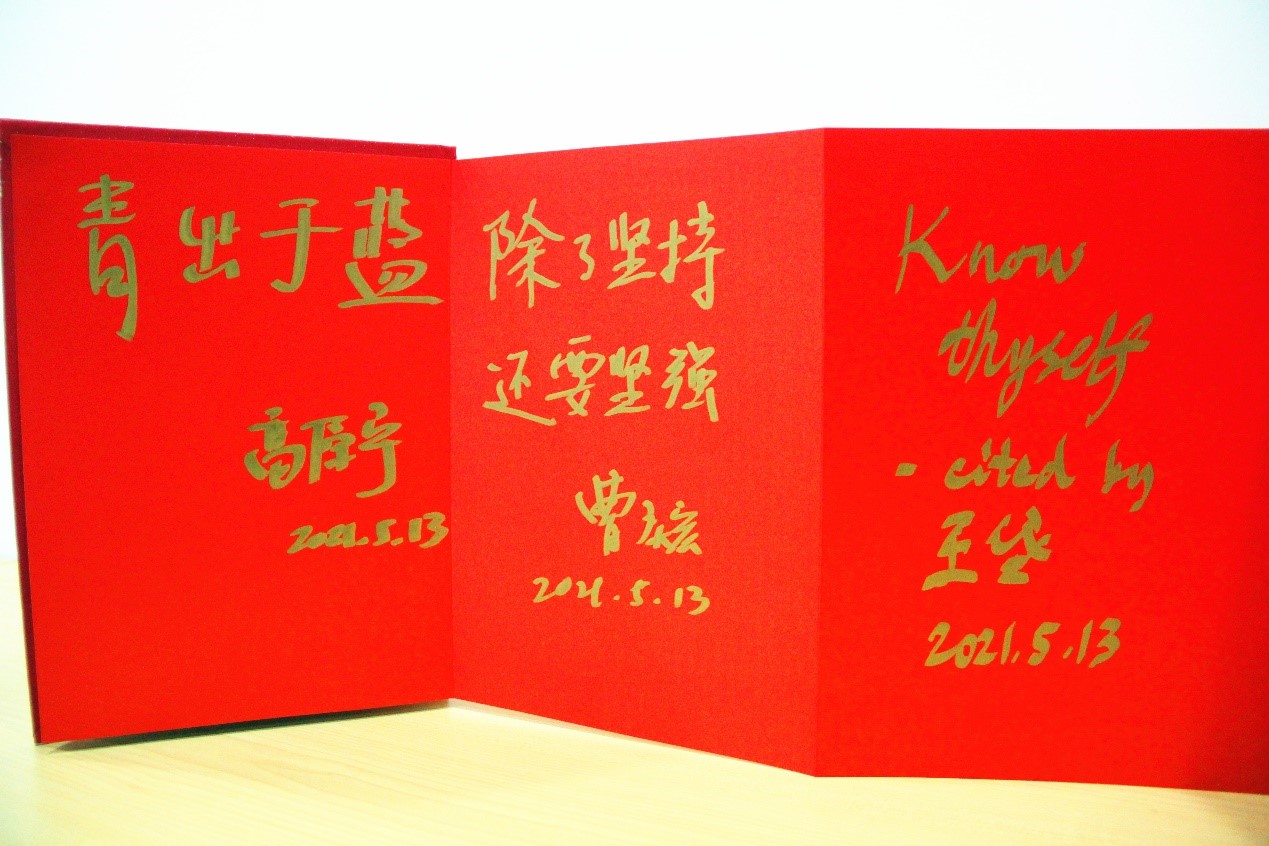 青出于蓝
高厚宇
2021.5.13
除了坚持
还要坚强
曹
2021.5.13
Know
thyself
- cited by
王
2021.5.13